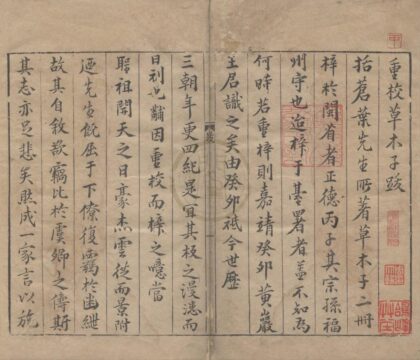 重校草木子跋
括蒼葉先生所著草木子二冊
梓於閩省者正德丙子其宗孫福
州守也迨梓于藩署者蓋不知爲
何時若重梓則嘉靖癸卯黄巖
王居識之矣由癸卯祗今世歷
三朝年更四紀是宜其板之漫漶而
日刓也黼因重校而梓之噫當
聖祖開天之日豪杰雲從而景附
廼先生旣屈于下僚復羈於幽紲
故其自敘救竊比於虞卿之傳斯
其志亦足悲矣然成一家言以旒